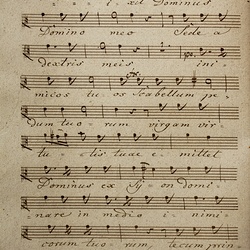 xit Dominus
Domino meo Sede a
dextris meis, ini-
micos tuos scabellum pe-
dum tuorum virgam vir-
tu-tis tuae emittet
Dominus ex Syon domi-
nare in medio inimi-
corum tuorum, tecum prin-